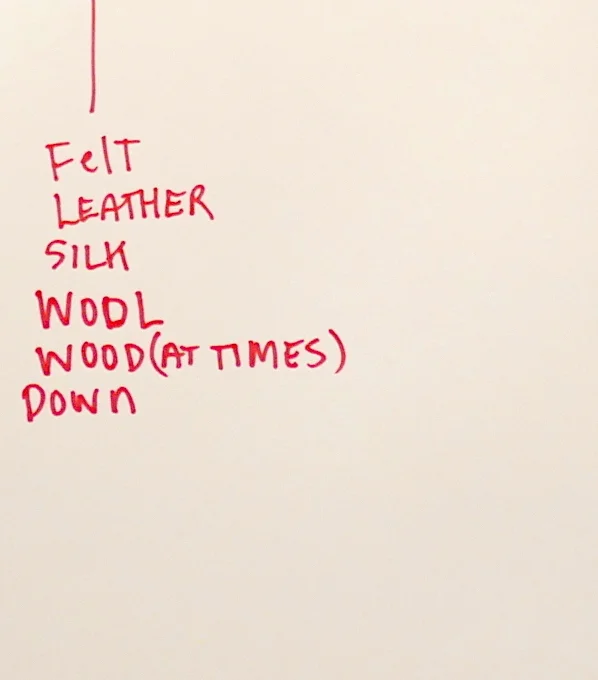 FelT
LEATHER
SILK
WOOL
WOOD (AT TIMES)
DOWn